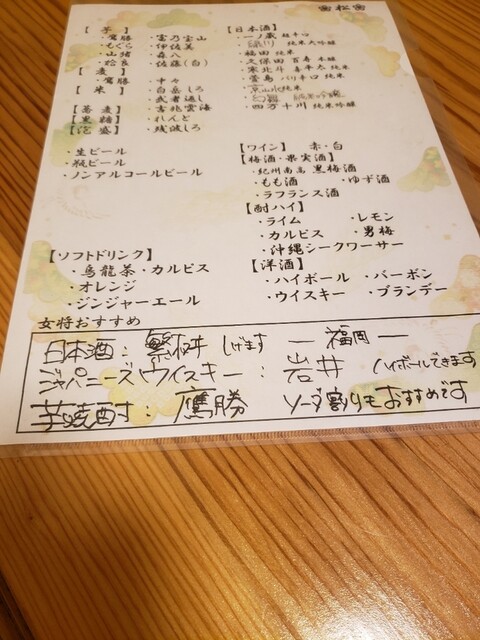 松
【芋】
・鷹勝 ・富乃宝山
・もぐら ・伊佐美
・山猪 ・森八
・松良 ・佐藤(白)
【麦】
・鷹勝 ・中々
【米】 ・白岳しろ
・武者返し
【蕎麦】 ・吉兆雲海
【黒糖】 ・れんと
【泡盛】 ・残波しろ
・生ビール
・瓶ビール
・ノンアルコールビール
【ソフトドリンク】
・烏龍茶 ・カルピス
・オレンジ
・ジンジャーエール
【日本酒】
・一ノ蔵 超辛口
純米大吟醸
・福田 純米
・久保田 百寿 本醸
・寒北斗 喜多辛 純米
・萱島 バリ辛口 純米
・京山水 純米
・四万十川 純米吟醸
【ワイン】 赤・白
【梅酒・果実酒】
・紀州南高 黒梅酒
・もも酒 ・ゆず酒
・ラフランス酒
【酎ハイ】
・ライム ・レモン
・カルピス ・男梅
・沖縄シークワーサー
【洋酒】
・ハイボール ・バーボン
・ウイスキー ・ブランデー
女将おすすめ
日本酒: 繁桝 しげます ー福岡ー
ジャパニーズウイスキー: 岩井 ハイボールできます
芋焼酎: 鷹勝 ソーダ割りもおすすめです